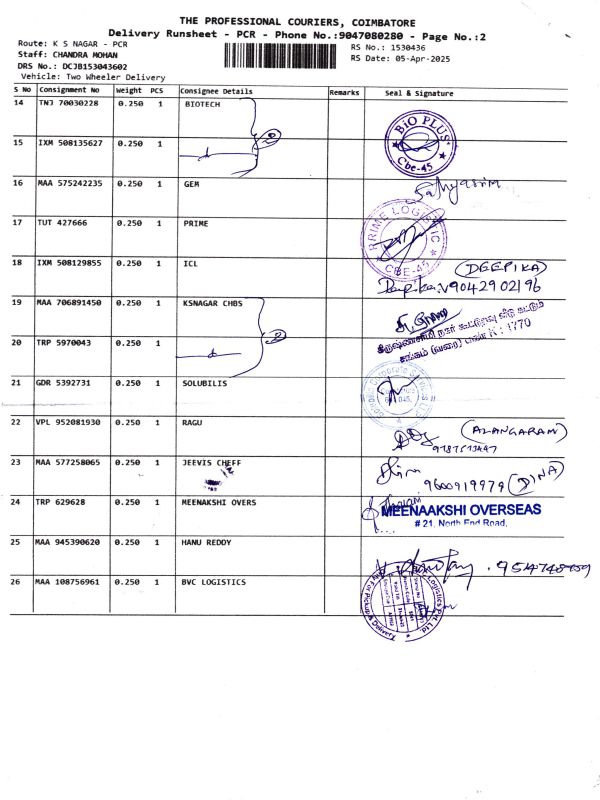 THE PROFESSIONAL COURIERS, COIMBATORE
Delivery Runsheet - PCR - Phone No.:9047080280 - Page No.:2
Route: K S NAGAR - PCR
RS No.: 1530436
Staff: CHANDRA MOHAN
RS Date: 05-Apr-2025
DRS No.: DCJB153043602
Vehicle: Two Wheeler Delivery
S No Consignment No Weight PCS Consignee Details Remarks Seal & Signature
14 TNJ 70030228 0.250 1 BIOTECH
BIO PLUS
Cbe-45
15 IXM 508135627 0.250 1
16 MAA 575242235 0.250 1 GEM
17 TUT 427666 0.250 1 PRIME
PRIME LOGISTIC
CBE-45
18 IXM 508129855 0.250 1 ICL (DEEPIKA)
9042902196
19 MAA 706891450 0.250 1 KSNAGAR CHBS
20 TRP 5970043 0.250 1
21 GDR 5392731 0.250 1 SOLUBILIS
22 VPL 952081930 0.250 1 RAGU (ALANGARAM)
23 MAA 577258065 0.250 1 JEEVIS CHEFF
9600919979 (DINA)
24 TRP 629628 0.250 1 MEENAKSHI OVERS
MEENAAKSHI OVERSEAS
# 21, North End Road,
25 MAA 945390620 0.250 1 HANU REDDY
26 MAA 108756961 0.250 1 BVC LOGISTICS
Logistics Pvt. Ltd.
For Pickup & Delivery